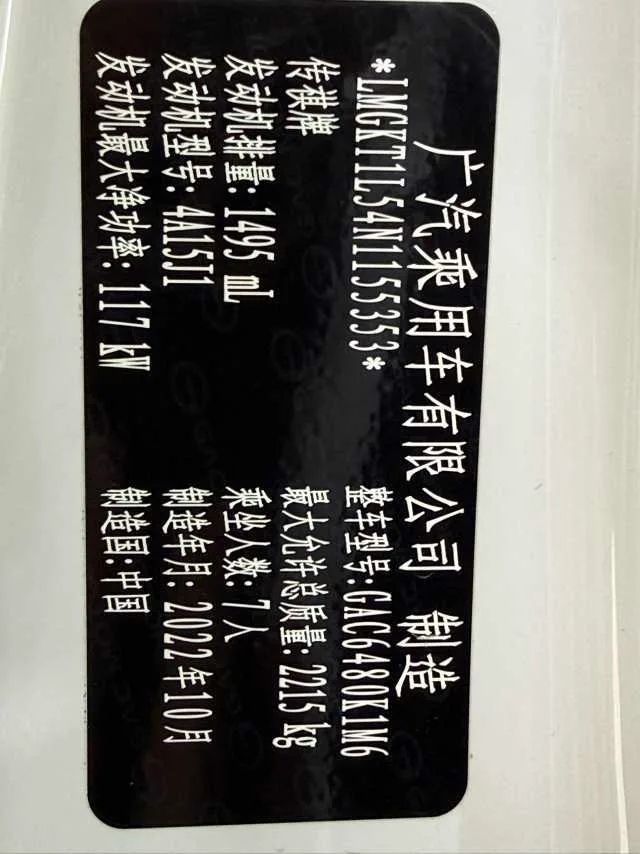 广汽乘用车有限公司 制造
*LMGKT1L54N1155353*
整车型号:GAC6480K1M6
传祺牌
最大允许总质量:2215 kg
发动机排量:1495 mL
乘坐人数:7人
发动机型号:4A15J1
制造年月:2022年10月
发动机最大净功率:117 kW
制造国:中国